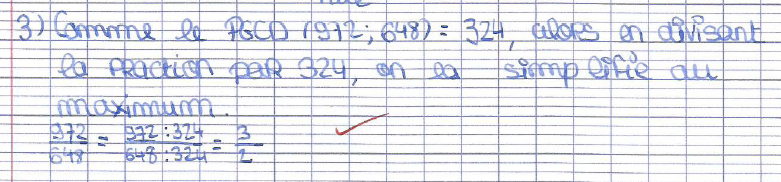 3) Comme le PGCD (972; 648) = 324, alors en divisant
la fraction par 324, on la simplifie au
maximum.
972/648 = 972 : 324/648 : 324 = 3/2